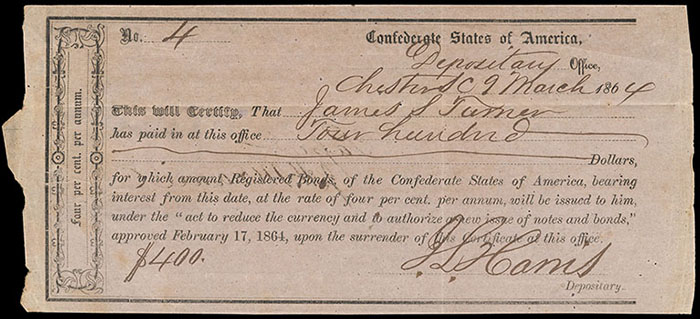 No. 4 Confederate States of America,
Depositary Office,
Chester SC 9 March 1864
This will Certify, That James S Turner
has paid in at this office Four hundred
Dollars,
for which amount, Registered Bonds, of the Confederate States of America, bearing
interest from this date, at the rate of four per cent. per annum, will be issued to him,
under the "act to reduce the currency and to authorize a new issue of notes and bonds,"
approved February 17, 1864, upon the surrender of this Certificate at this office.
$400.
Depositary.
Four per cent. per annum.